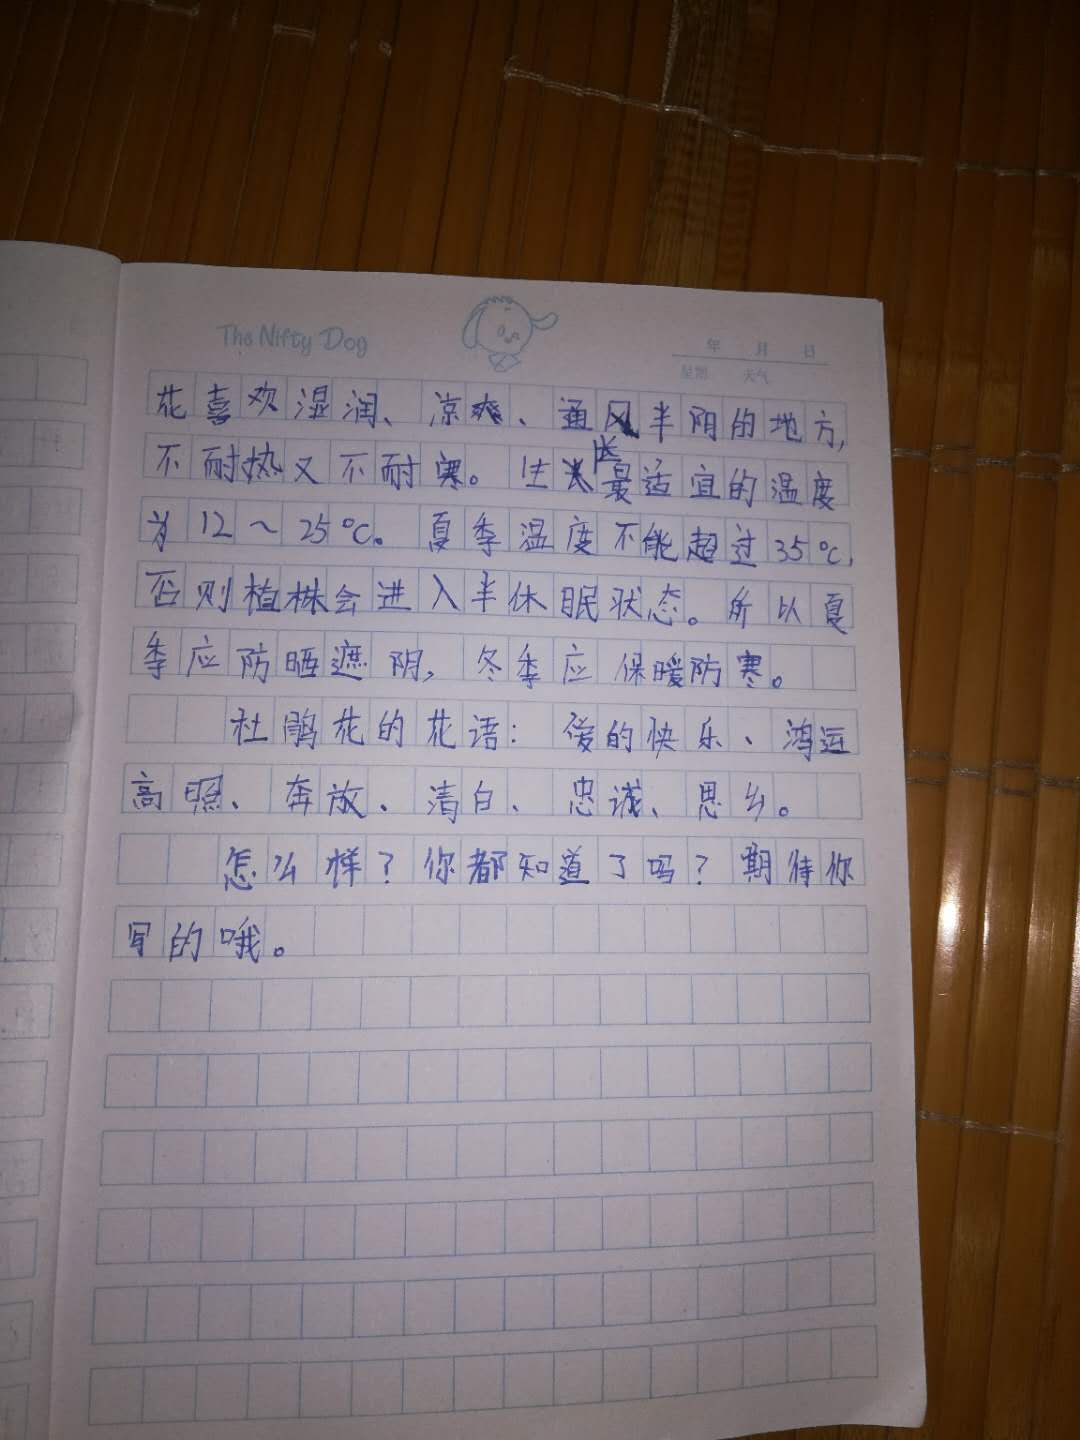 The Nifty Dog
年 月 日
星期 天气
花喜欢湿润、凉爽、通风半阴的地方,
不耐热又不耐寒。生长最适宜的温度
为12～25°C。夏季温度不能超过35°C,
否则植株会进入半休眠状态。所以夏
季应防晒遮阴,冬季应保暖防寒。
杜鹃花的花语：爱的快乐、鸿运
高照、奔放、清白、忠诚、思乡。
怎么样？你都知道了吗？期待你
写的哦。